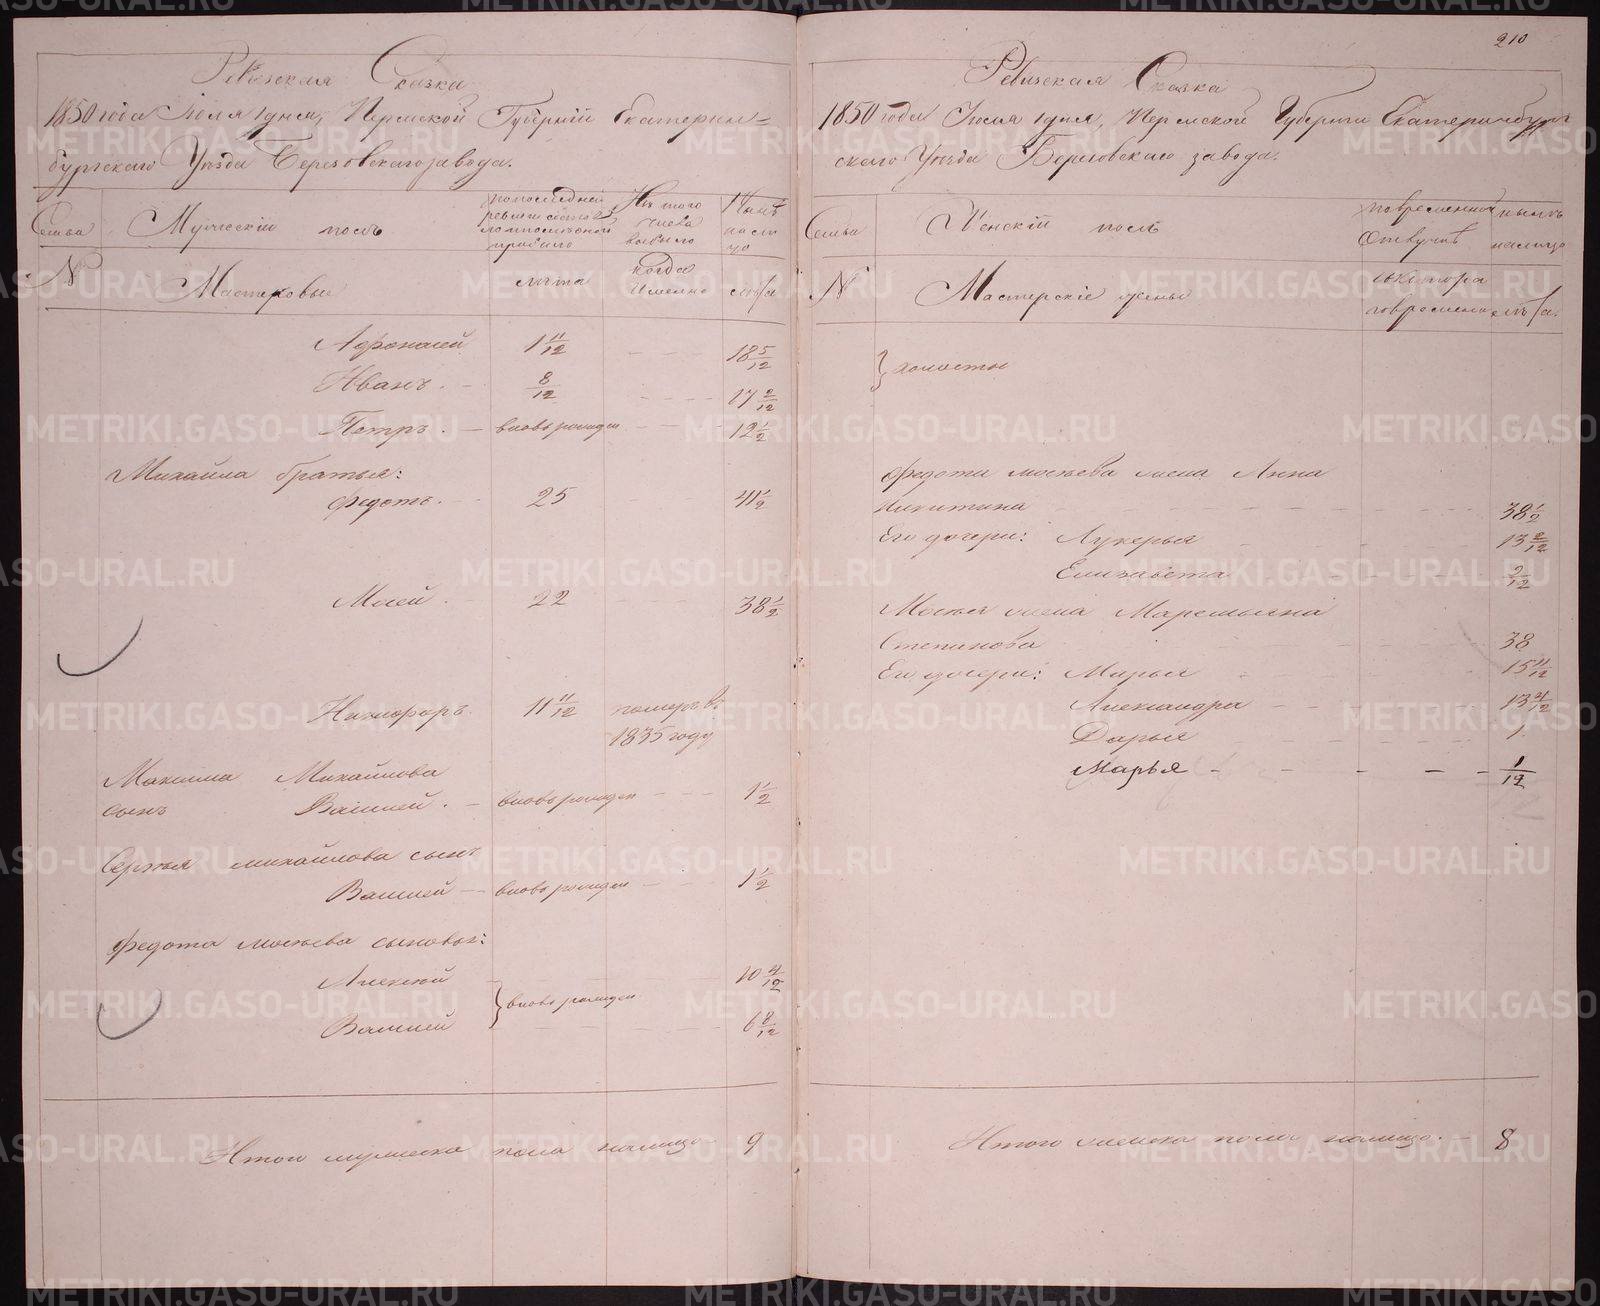 210
Ревизская Сказка
1850 года Июля 1 дня, Пермской Губернии Екатерин=
бургского Уезда Березовского завода.
Семьи
Мужеский полъ
По последней
ревизии состо
прибыло
Изъ того
числа
выбыло
Нынѣ
на ли
цо
N
Мастеровые
лѣта
когда
именно
лѣта
Афонасей 1 11/12 18 5/12
Иванъ 8/12 17 2/12
Петръ вновь рожден 12 1/2
Михайла братья:
Федотъ 25 41 1/2
Мосей 22 38 1/2
Никифоръ 11 11/12 померъ въ
1835 году
Максима Михайлова
сынъ Василей вновь рожден 1 1/2
Сергея Михайлова сынъ
Василей вновь рожден 1 1/2
Федота Мосеева сыновья:
Алексей 10 4/12
вновь рожден
Василей 6 8/12
Итого мужеска пола налицо 9
Ревизская Сказка
1850 года Июля 1 дня, Пермской Губернии Екатеринбург
ского Уезда Березовскаго завода.
Семьи
Женский полъ
во временной
отлучкѣ
нынѣ
налицо
N
Мастерские жены
съ котораго
времени
лѣта
холосты
Федота Мосеева жена Анна
Никитина 38 1/2
Его дочери: Лукерья 13 2/12
Елизавета 2/12
Мосея жена Маремьяна
Степанова 38
Его дочери: Марья 15 11/12
Александра 13 4/12
Дарья 1
Марья 1/12
Итого женска пола налицо 8
METRIKI.GASO-URAL.RU